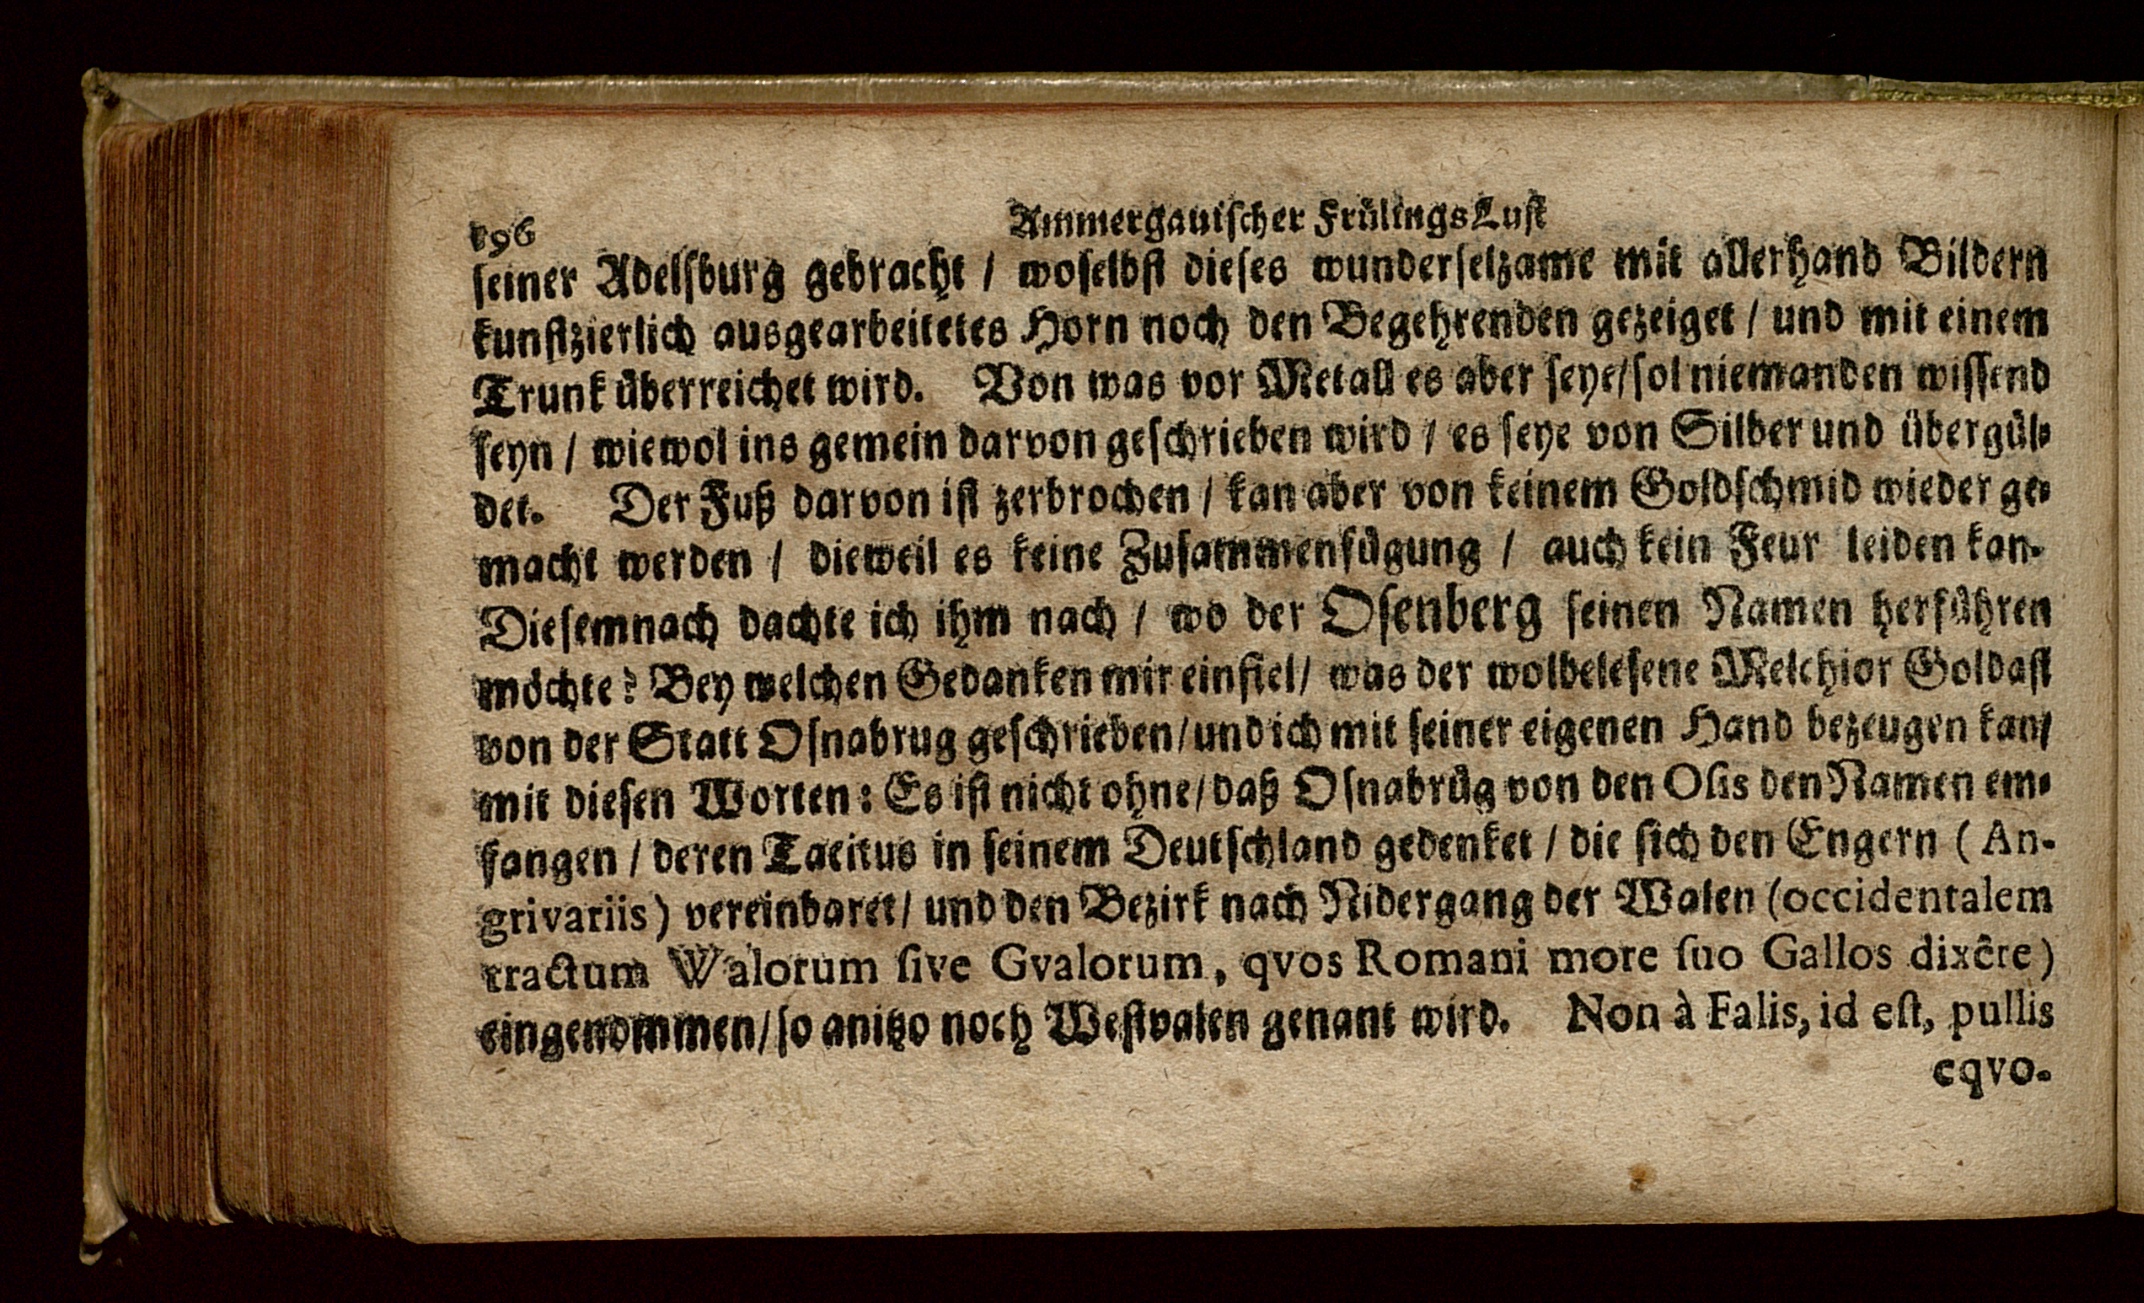 196 Ammergauischer FrülingsLust
seiner Adelsburg gebracht / woselbst dieses wunderselzame mit allerhand Bildern
kunstzierlich ausgearbeitetes Horn noch den Begehrenden gezeiget / und mit einem
Trunk überreichet wird. Von was vor Metall es aber seye / sol niemanden wissend
seyn / wiewol ins gemein darvon geschrieben wird / es seye von Silber und übergül-
det. Der Fuß darvon ist zerbrochen / kan aber von keinem Goldschmid wieder ge-
macht werden / dieweil es keine Zusammenfügung / auch kein Feur leiden kan.
Diesemnach dachte ich ihm nach / wo der Osenberg seinen Namen herführen
möchte? Bey welchen Gedanken mir einfiel / was der wolbelesene Melchior Goldast
von der Statt Osnabrug geschrieben / und ich mit seiner eigenen Hand bezeugen kan /
mit diesen Worten: Es ist nicht ohne / daß Osnabrüg von den Osis den Namen em-
fangen / deren Tacitus in seinem Deutschland gedenket / die sich den Engern (An-
grivariis) vereinbaret / und den Bezirk nach Nidergang der Walen (occidentalem
tractum Walorum sive Gvalorum, qvos Romani more suo Gallos dixêre)
eingenommen / so anitzo noch Westvalen genant wird. Non à Falis, id est, pullis
eqvo-